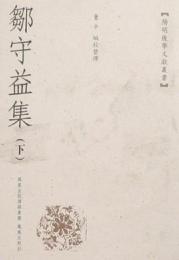 【陽明後學文獻叢書】
董平 編校整理
鄒守益集
（下）
鳳凰出版傳媒集團 鳳凰出版社